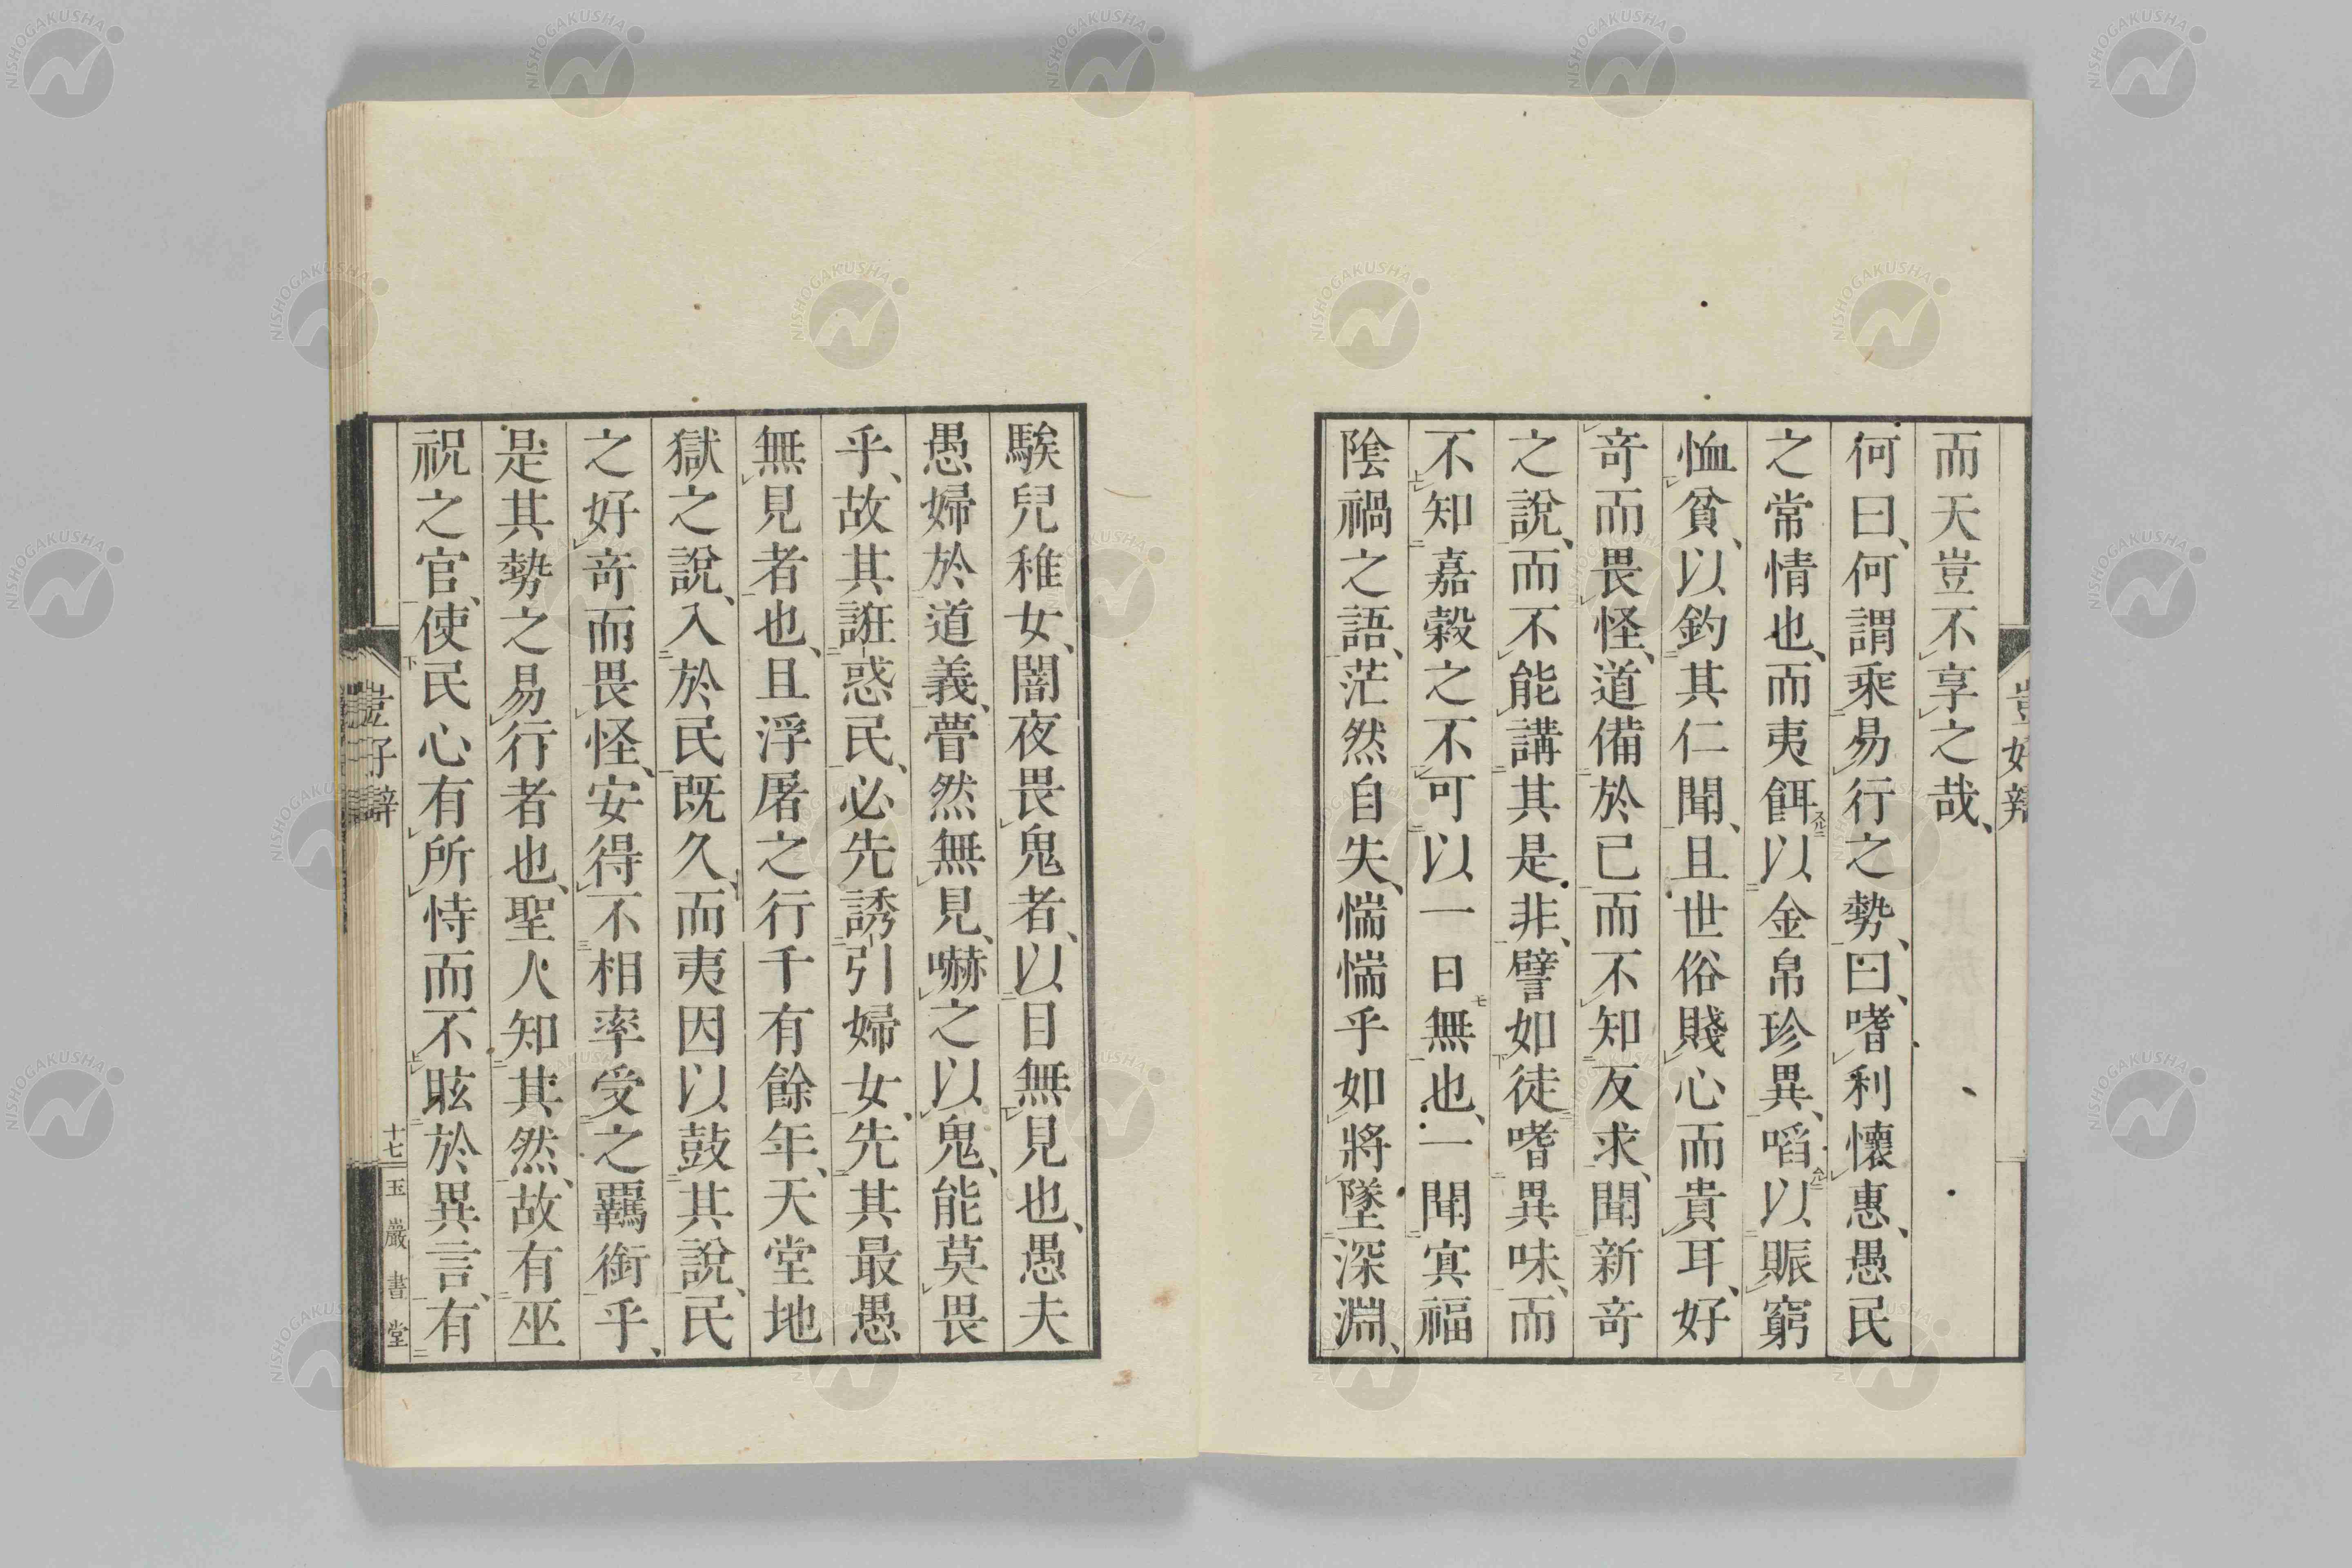 而天豈不享之哉、
何曰、何謂乘易行之勢、曰、嗜利懷惠、愚民
之常情也、而夷餌以金帛珍異、啗以賑窮
恤貧、以釣其仁聞、且世俗賤心而貴耳、好
奇而畏怪、道備於己而不知反求、聞新奇
之說、而不能講其是非、譬如徒嗜異味、而
不知嘉穀之不可以一日無也、一聞冥福
陰禍之語、茫然自失、惴惴乎如將墜深淵、
騃兒稚女、闇夜畏鬼者、以目無見也、愚夫
愚婦於道義、瞢然無見、嚇之以鬼、能莫畏
乎、故其誑惑民、必先誘引婦女、先其最愚
無見者也、且浮屠之行千有餘年、天堂地
獄之說、入於民既久、而夷因以鼓其說、民
之好奇而畏怪、安得不相率受之羈銜乎、
是其勢之易行者也、聖人知其然、故有巫
祝之官、使民心有所恃而不眩於異言、有
豈好辯
十七
玉巖書堂
NISHOGAKUSHA